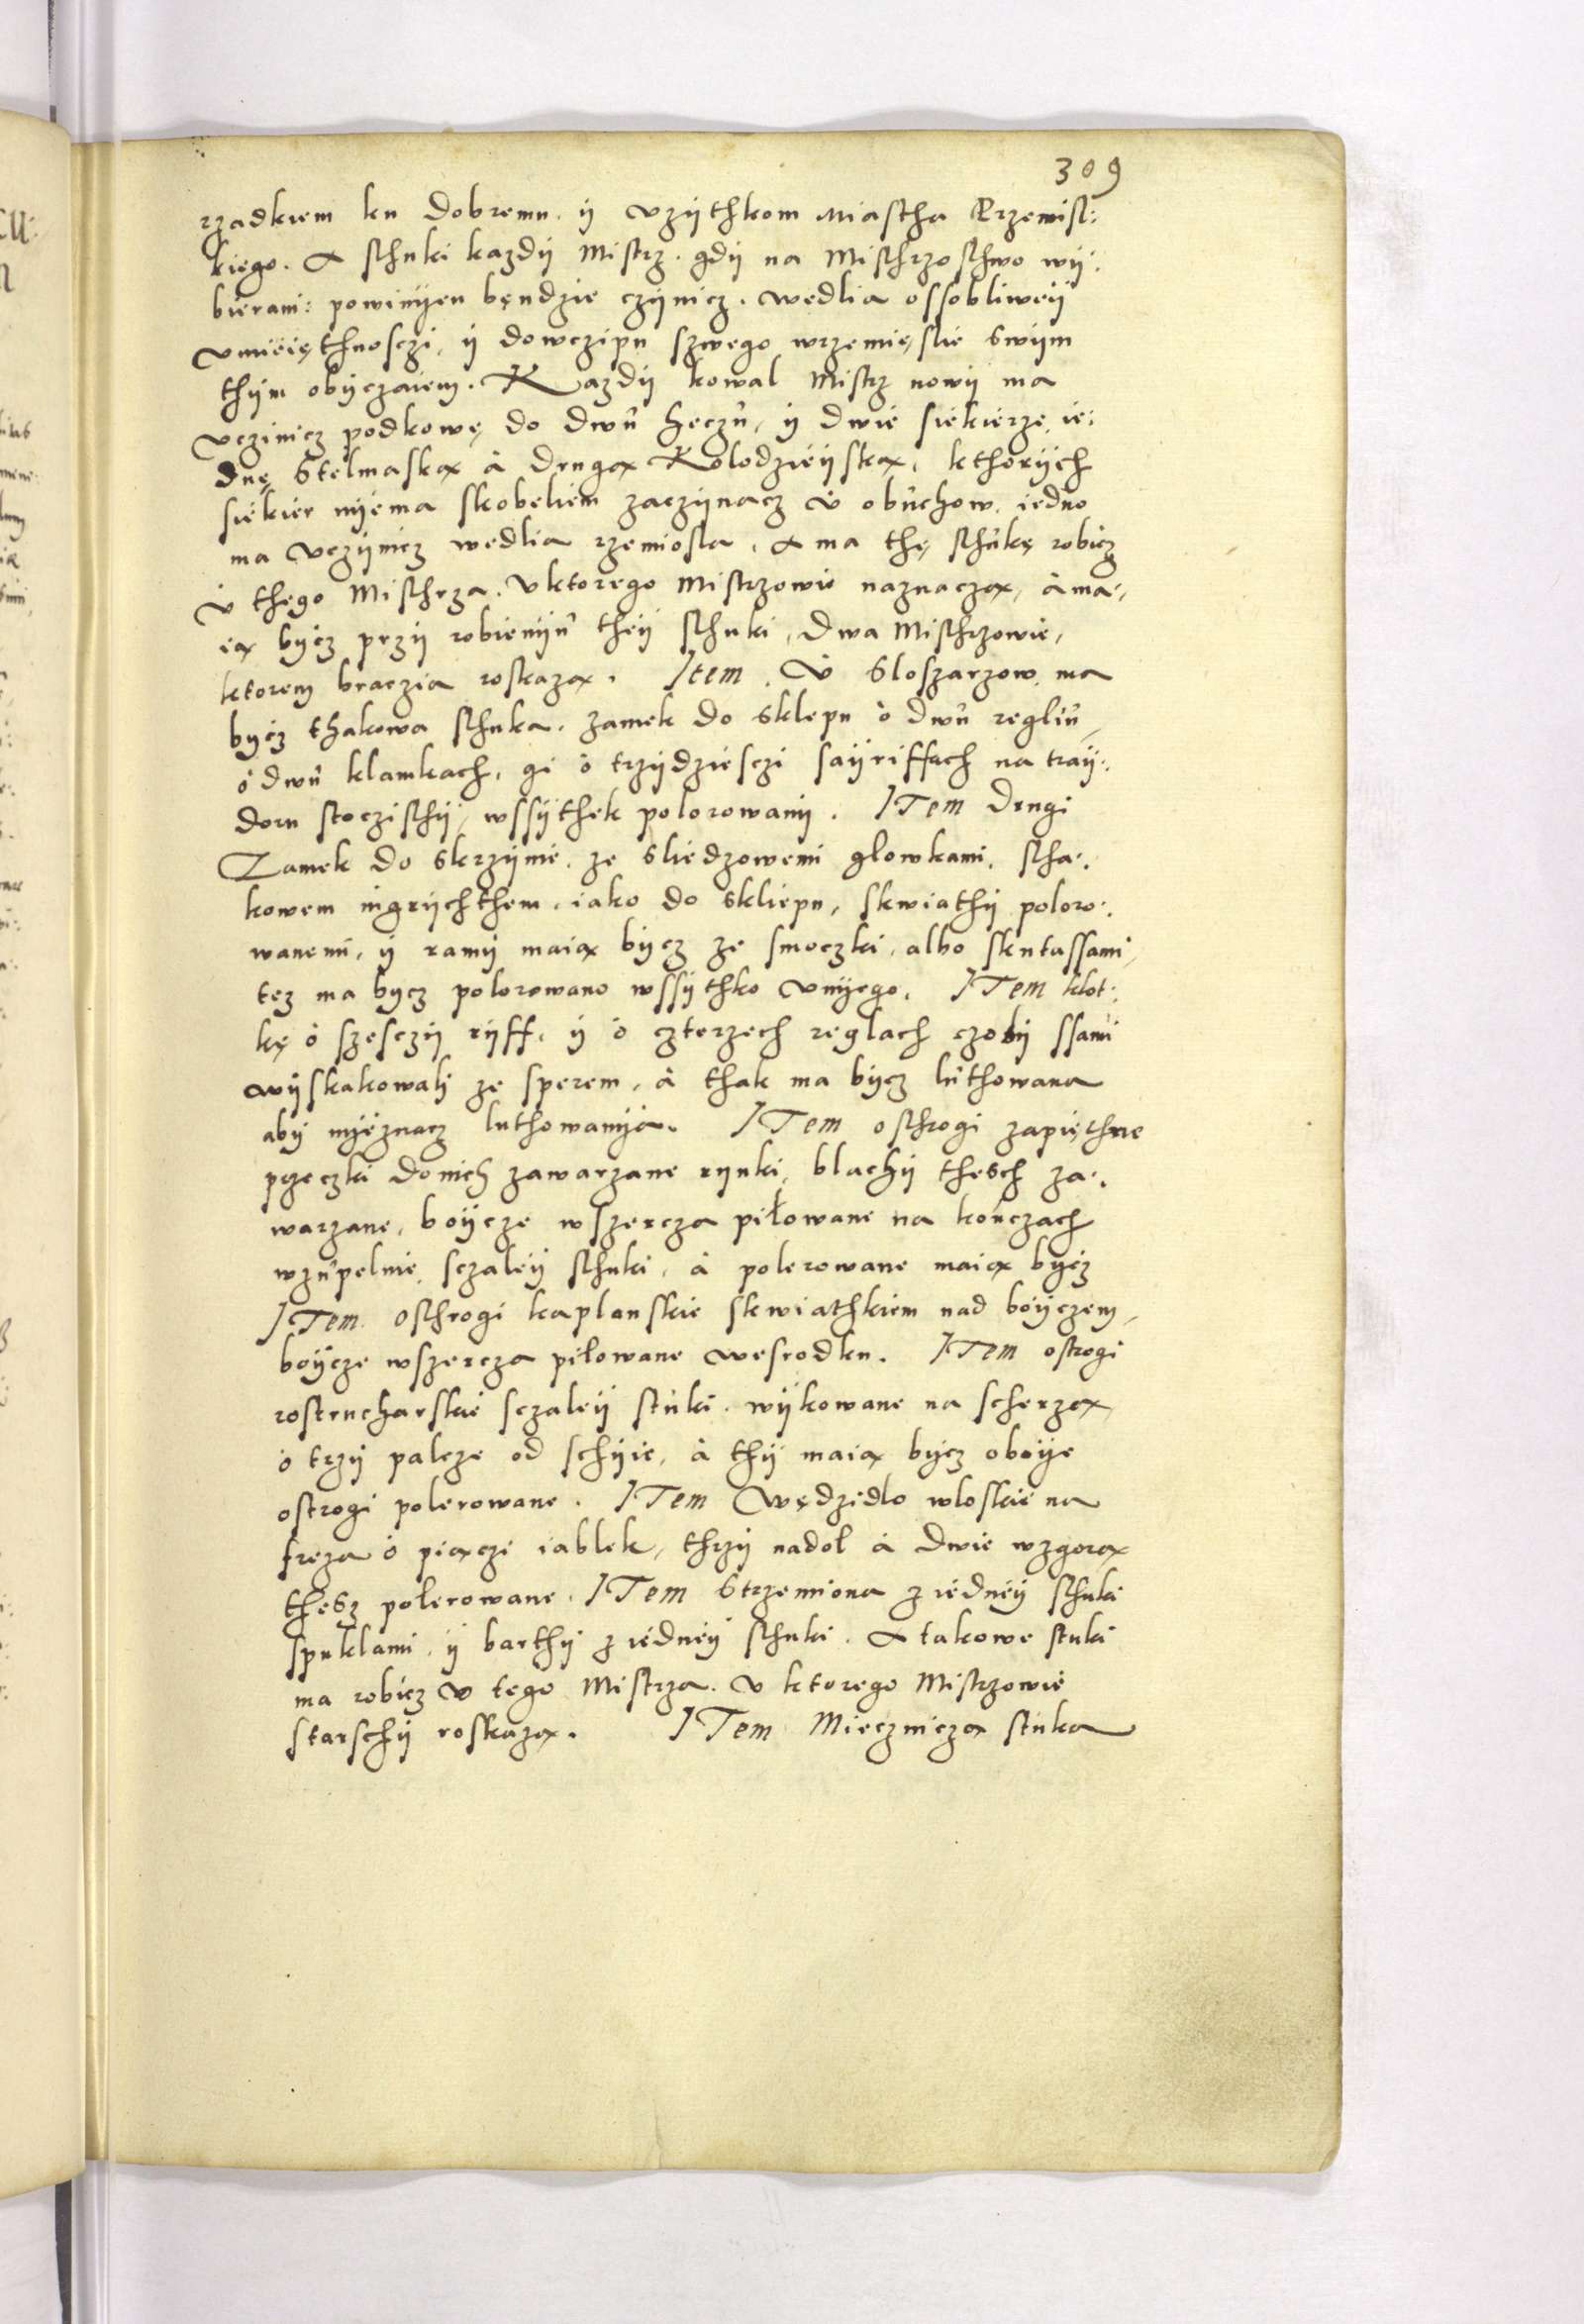 309
rządkiem ku dobremu. ÿ vzÿthkom Miastha Przemisl:
kiego. A schuki kazdÿ Mistrz. gdÿ na Mischrzoschwo wÿ:
bierani: powinÿen bęndzie czÿnicz. wedlia ossobliweÿ
vmieięthnosczi, ÿ dowczipu szwego wrzemięslie swÿm
thÿm obÿczaiem. Kazdÿ kowal Mistrz nowÿ ma
vczinicz podkowę do dwu heczu, ÿ dwie siekierze, ie:
dnę Stelmaską à drugą Kolodzieÿską, kthorÿch
siekier nÿema skobeliem zaczÿnacz v obuchow. iedno
ma vczÿnicz wedlia rzemiosla, A ma thę schukę robicz
v thego Mischrza. vktorego Mistrzowie naznaczą, àma:
ią bÿcz przÿ robienÿu theÿ schuki, dwa Mischrzowie,
ktorem braczia roskazą. Item. V Sloszarzow. ma
bÿcz thakowa schuka. zamek do sklepu ò dwu regliu,
ò dwu klamkach, gi ò trzÿdziesczi saÿriffach na traÿ:
doru stoczischÿ, wssÿthek polorowanÿ. ITem drugi
Zamek do skrzÿnie. ze sliedzowemi glowkami, scha:
kowem nigrÿchthem. iako do skliepu, skwiathÿ poloro:
wanemi, ÿ ramÿ maią bÿcz ze smoczki, albo skutassami,
tez ma bÿcz polorowano wssÿthko vnÿego. ITem klot:
kę ò szesczÿ rÿff. ÿ ò czterzech reglach czobÿ ssami
wÿskakowalÿ ze sperem, à thak ma bÿcz luthowana
abÿ nÿeznacz luthowanÿa. ITem oschrogi zapięthne
przeczki donich zawarzane rÿnki, blachÿ thesch za:
warzane, boÿcze wszercza piłowane na kończach
wzupelnie, sczaleÿ schuki, à polerowane maią bÿcz
ITem. Oschrogi kaplanskie skwiathkiem nad boÿczem,
boÿcze wszercza piłowane wesrodku. ITem ostrogi
rostrucharskie sczaleÿ stuki. wÿkowane na scherzą
ò trzÿ palcze od schÿie, à thÿ maią bÿcz oboÿe
ostrogi polerowane. ITem Wędzidlo wloskie na
freza ò piączi iablek, thrzÿ nadol à dwie wzgorą
thesz polerowane. ITem Strzemiona z iedneÿ schuki
spuklami, ÿ barthÿ z iedneÿ schuki. A takowe stuki
ma robicz v tego Mistrza. v ktorego Mistrzowie
starschÿ roskazą. ITem Mieczniczą stuka